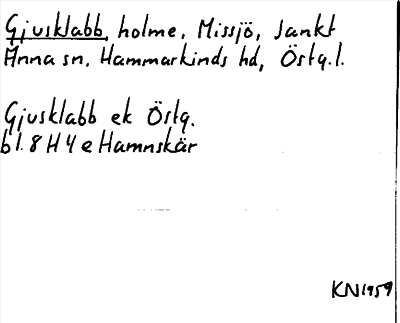 Gjusklabb, holme, Missjö, Sankt
Anna sn. Hammarkinds hd, Östg.l.
Gjusklabb ek Östg.
bl. 8 H 4 e Hamnskär
KN 1959